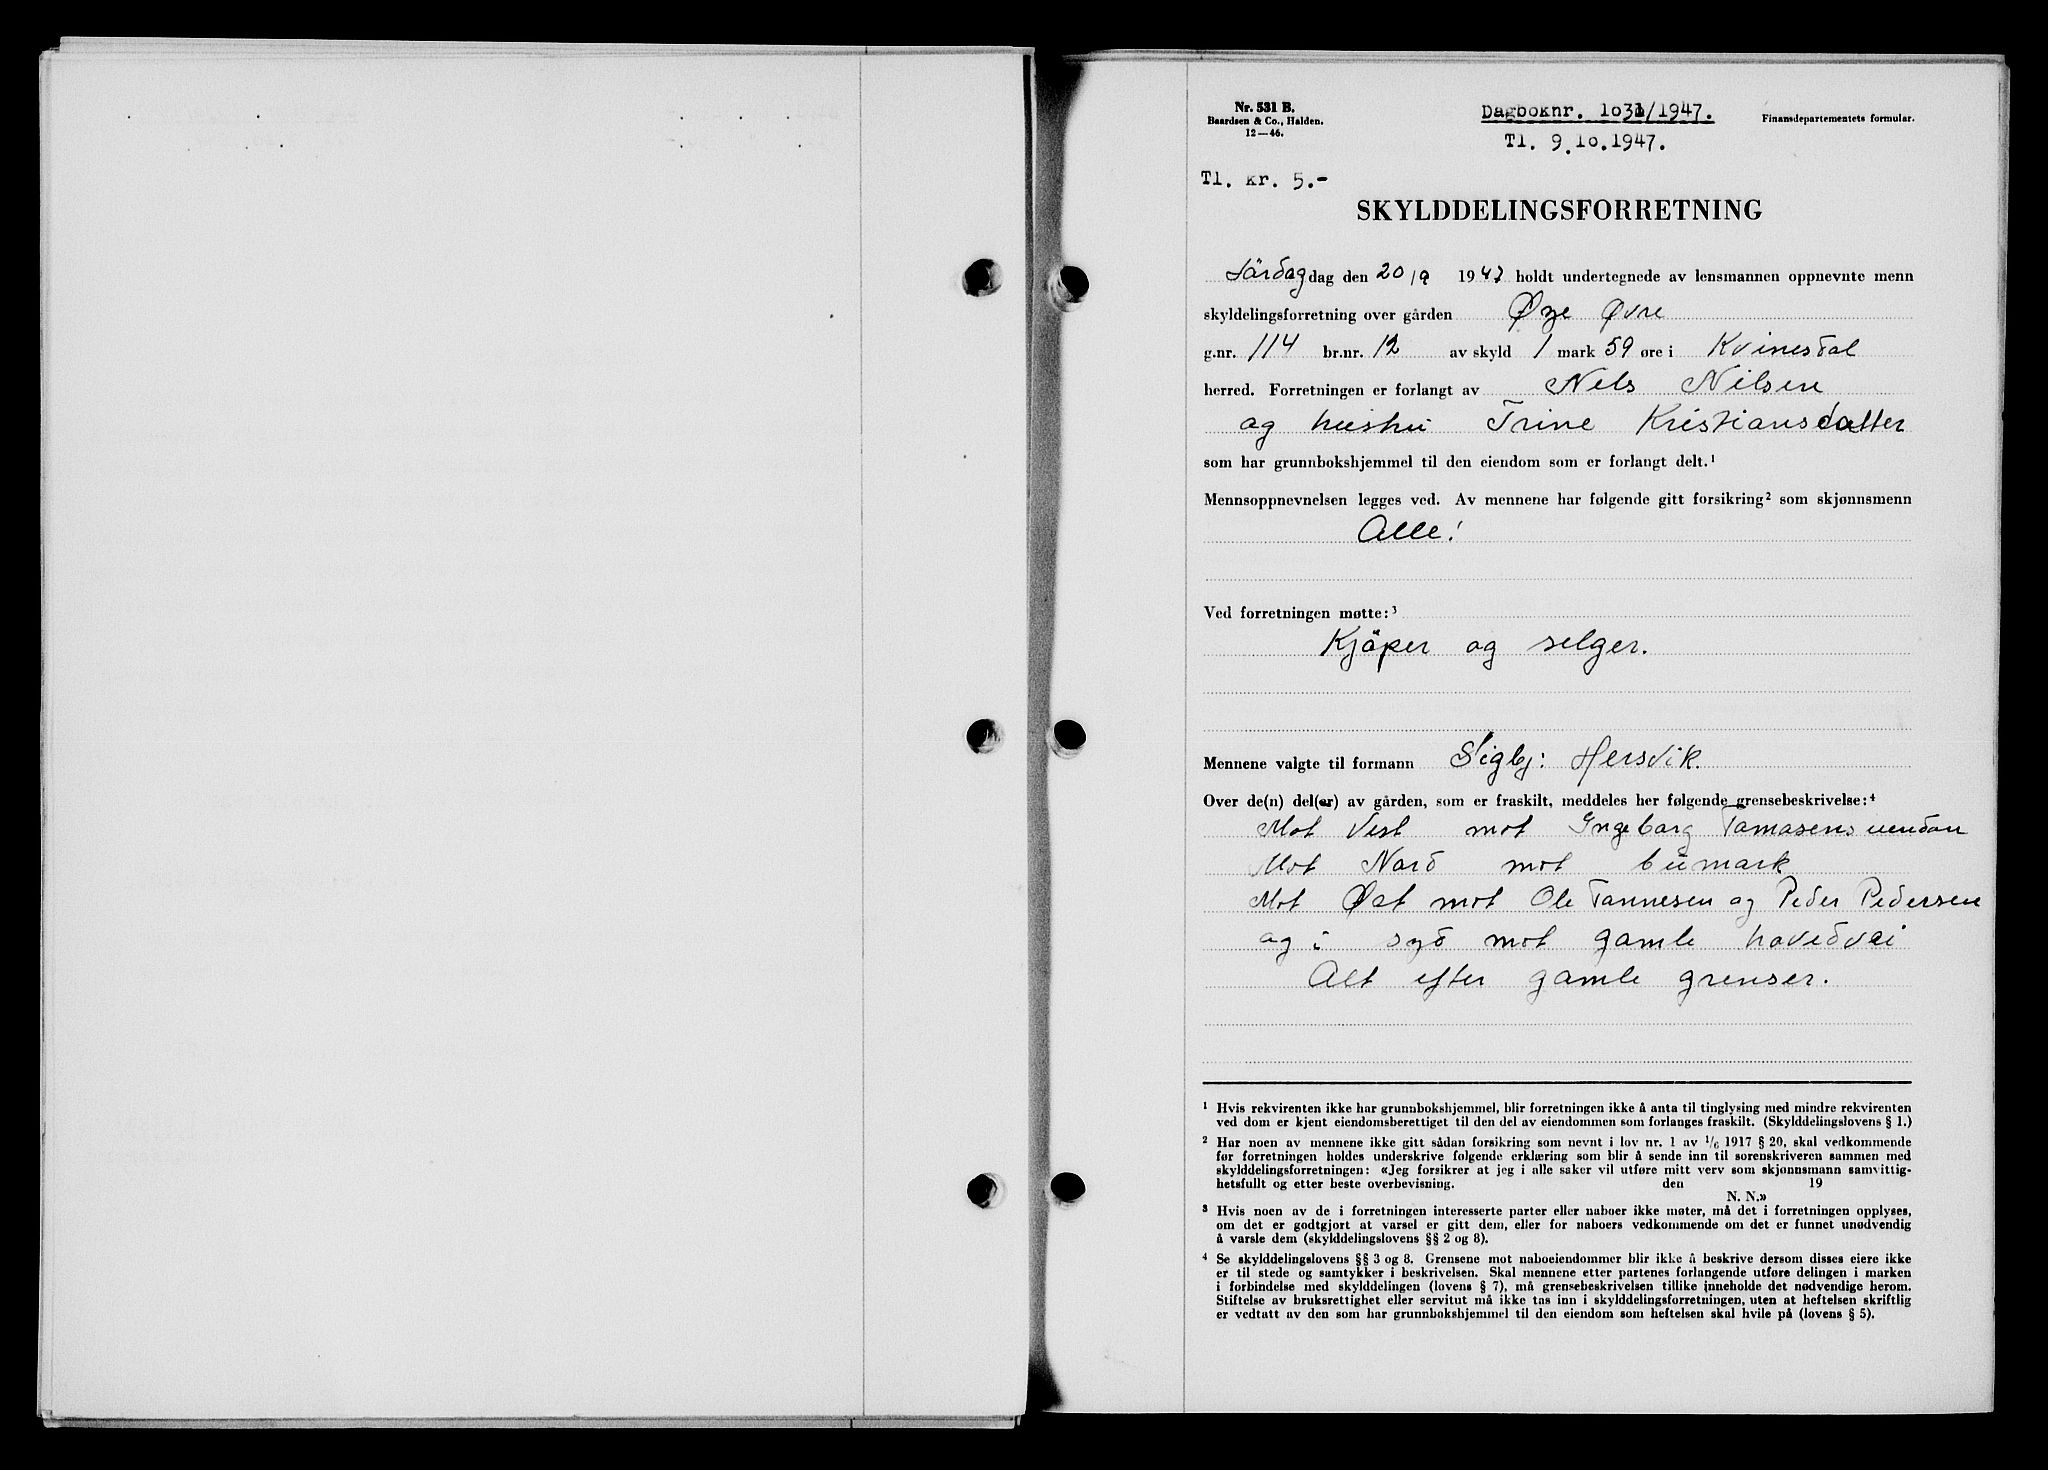 Nr. 531 B.
Baardsen & Co., Halden.
12—46.
Dagboknr. 1031/1947.
Tl. 9.10.1947.
Finansdepartementets formular.
Tl. kr. 5.-
SKYLDDELINGSFORRETNING
Lördag dag den 20/9 1947 holdt undertegnede av lensmannen oppnevnte menn
skyldelingsforretning over gården Øye Øvre
g.nr. 114 br.nr. 12 av skyld 1 mark 59 øre i Kvinesdal
herred. Forretningen er forlangt av Nels Nilsen
og hustru Trine Kristiansdatter
som har grunnbokshjemmel til den eiendom som er forlangt delt.¹
Mennsoppnevnelsen legges ved. Av mennene har følgende gitt forsikring² som skjønnsmenn
Alle!
Ved forretningen møtte:³
Kjöper og selger.
Mennene valgte til formann Sigbj: Hersvik.
Over de(n) del(er) av gården, som er fraskilt, meddeles her følgende grensebeskrivelse:⁴
Mot Vest mot Ingeborg Tomasens
Mot Nord mot bumark
Mot Øst mot Ole Tønnesen og Peder Pedersen
og i syd mot gamle hovedvei
Alt efter gamle grenser.
¹ Hvis rekvirenten ikke har grunnbokshjemmel, blir forretningen ikke å anta til tinglysing med mindre rekvirenten
ved dom er kjent eiendomsberettiget til den del av eiendommen som forlanges fraskilt. (Skylddelingslovens § 1.)
² Har noen av mennene ikke gitt sådan forsikring som nevnt i lov nr. 1 av 1/6 1917 § 20, skal vedkommende
før forretningen holdes underskrive følgende erklæring som blir å sende inn til sorenskriveren sammen med
skylddelingsforretningen: «Jeg forsikrer at jeg i alle saker vil utføre mitt verv som skjønnsmann samvittig-
hetsfullt og etter beste overbevisning. den 19
N. N.»
³ Hvis noen av de i forretningen interesserte parter eller naboer ikke møter, må det i forretningen opplyses,
om det er godtgjort at varsel er gitt dem, eller for naboers vedkommende om det er funnet unødvendig
å varsle dem (skylddelingslovens §§ 2 og 8).
⁴ Se skylddelingslovens §§ 3 og 8. Grensene mot naboeiendommer blir ikke å beskrive dersom disses eiere ikke
er til stede og samtykker i beskrivelsen. Skal mennene etter partenes forlangende utføre delingen i marken
i forbindelse med skylddelingen (lovens § 7), må grensebeskrivelsen tillike inneholde det nødvendige herom.
Stiftelse av bruksrettighet eller servitut må ikke tas inn i skylddelingsforretningen, uten at heftelsen skriftlig
er vedtatt av den som har grunnbokshjemmel til den eiendom som heftelsen skal hvile på (lovens § 5).